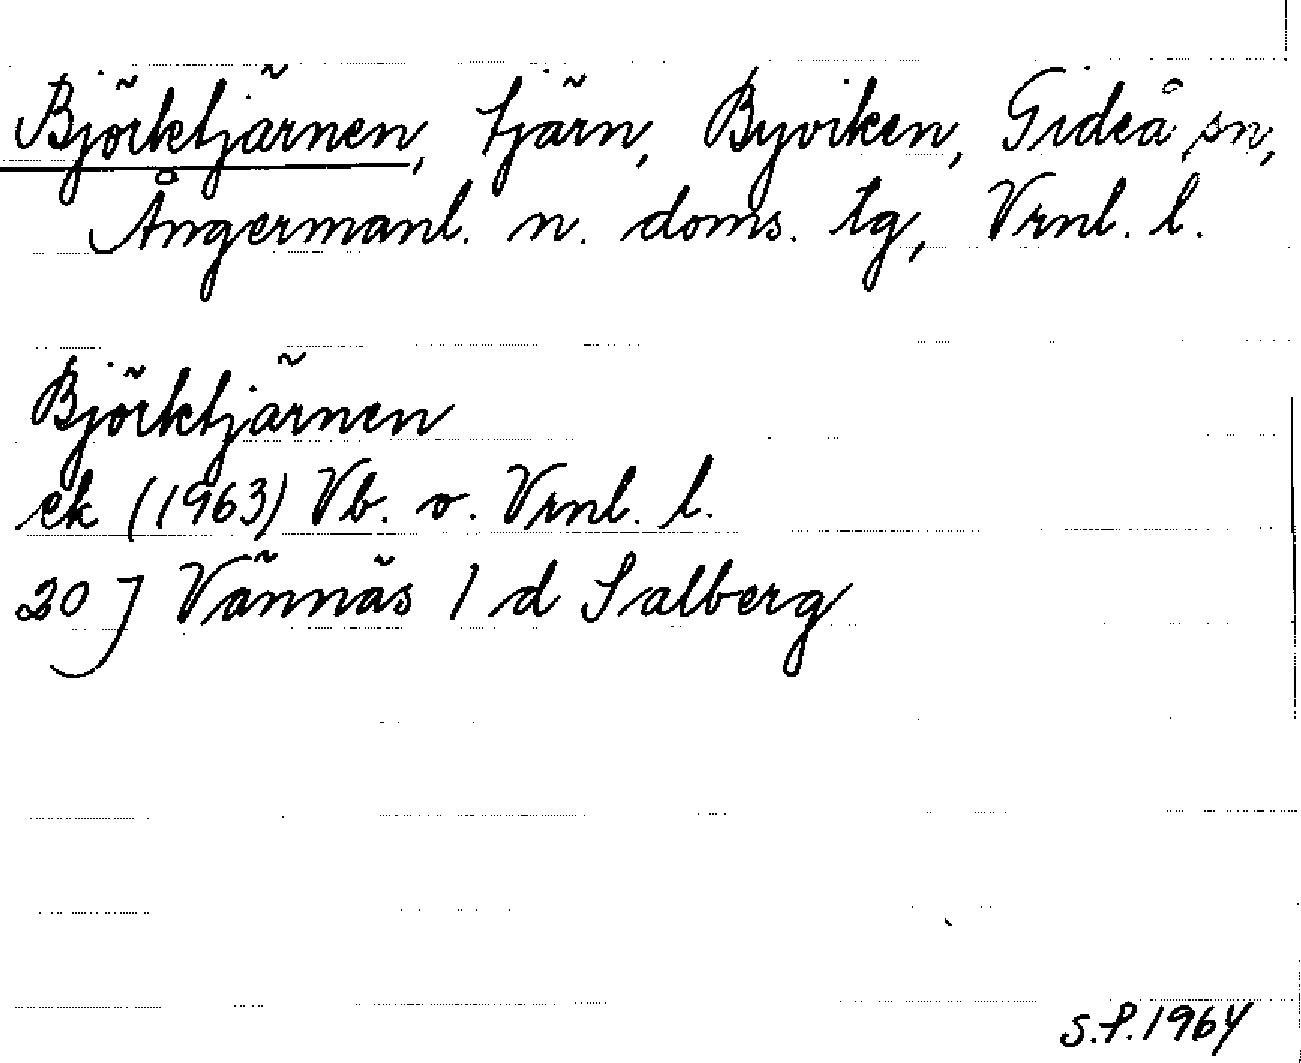 Björktjärnen, tjärn, Byviken, Gideå sn,
Ångermanl. n. doms. tg, Vrnl. l.
Björktjärnen
ek (1963) Vb. o. Vrnl. l.
20 J Vännäs 1 d Salberg
S.P. 1964